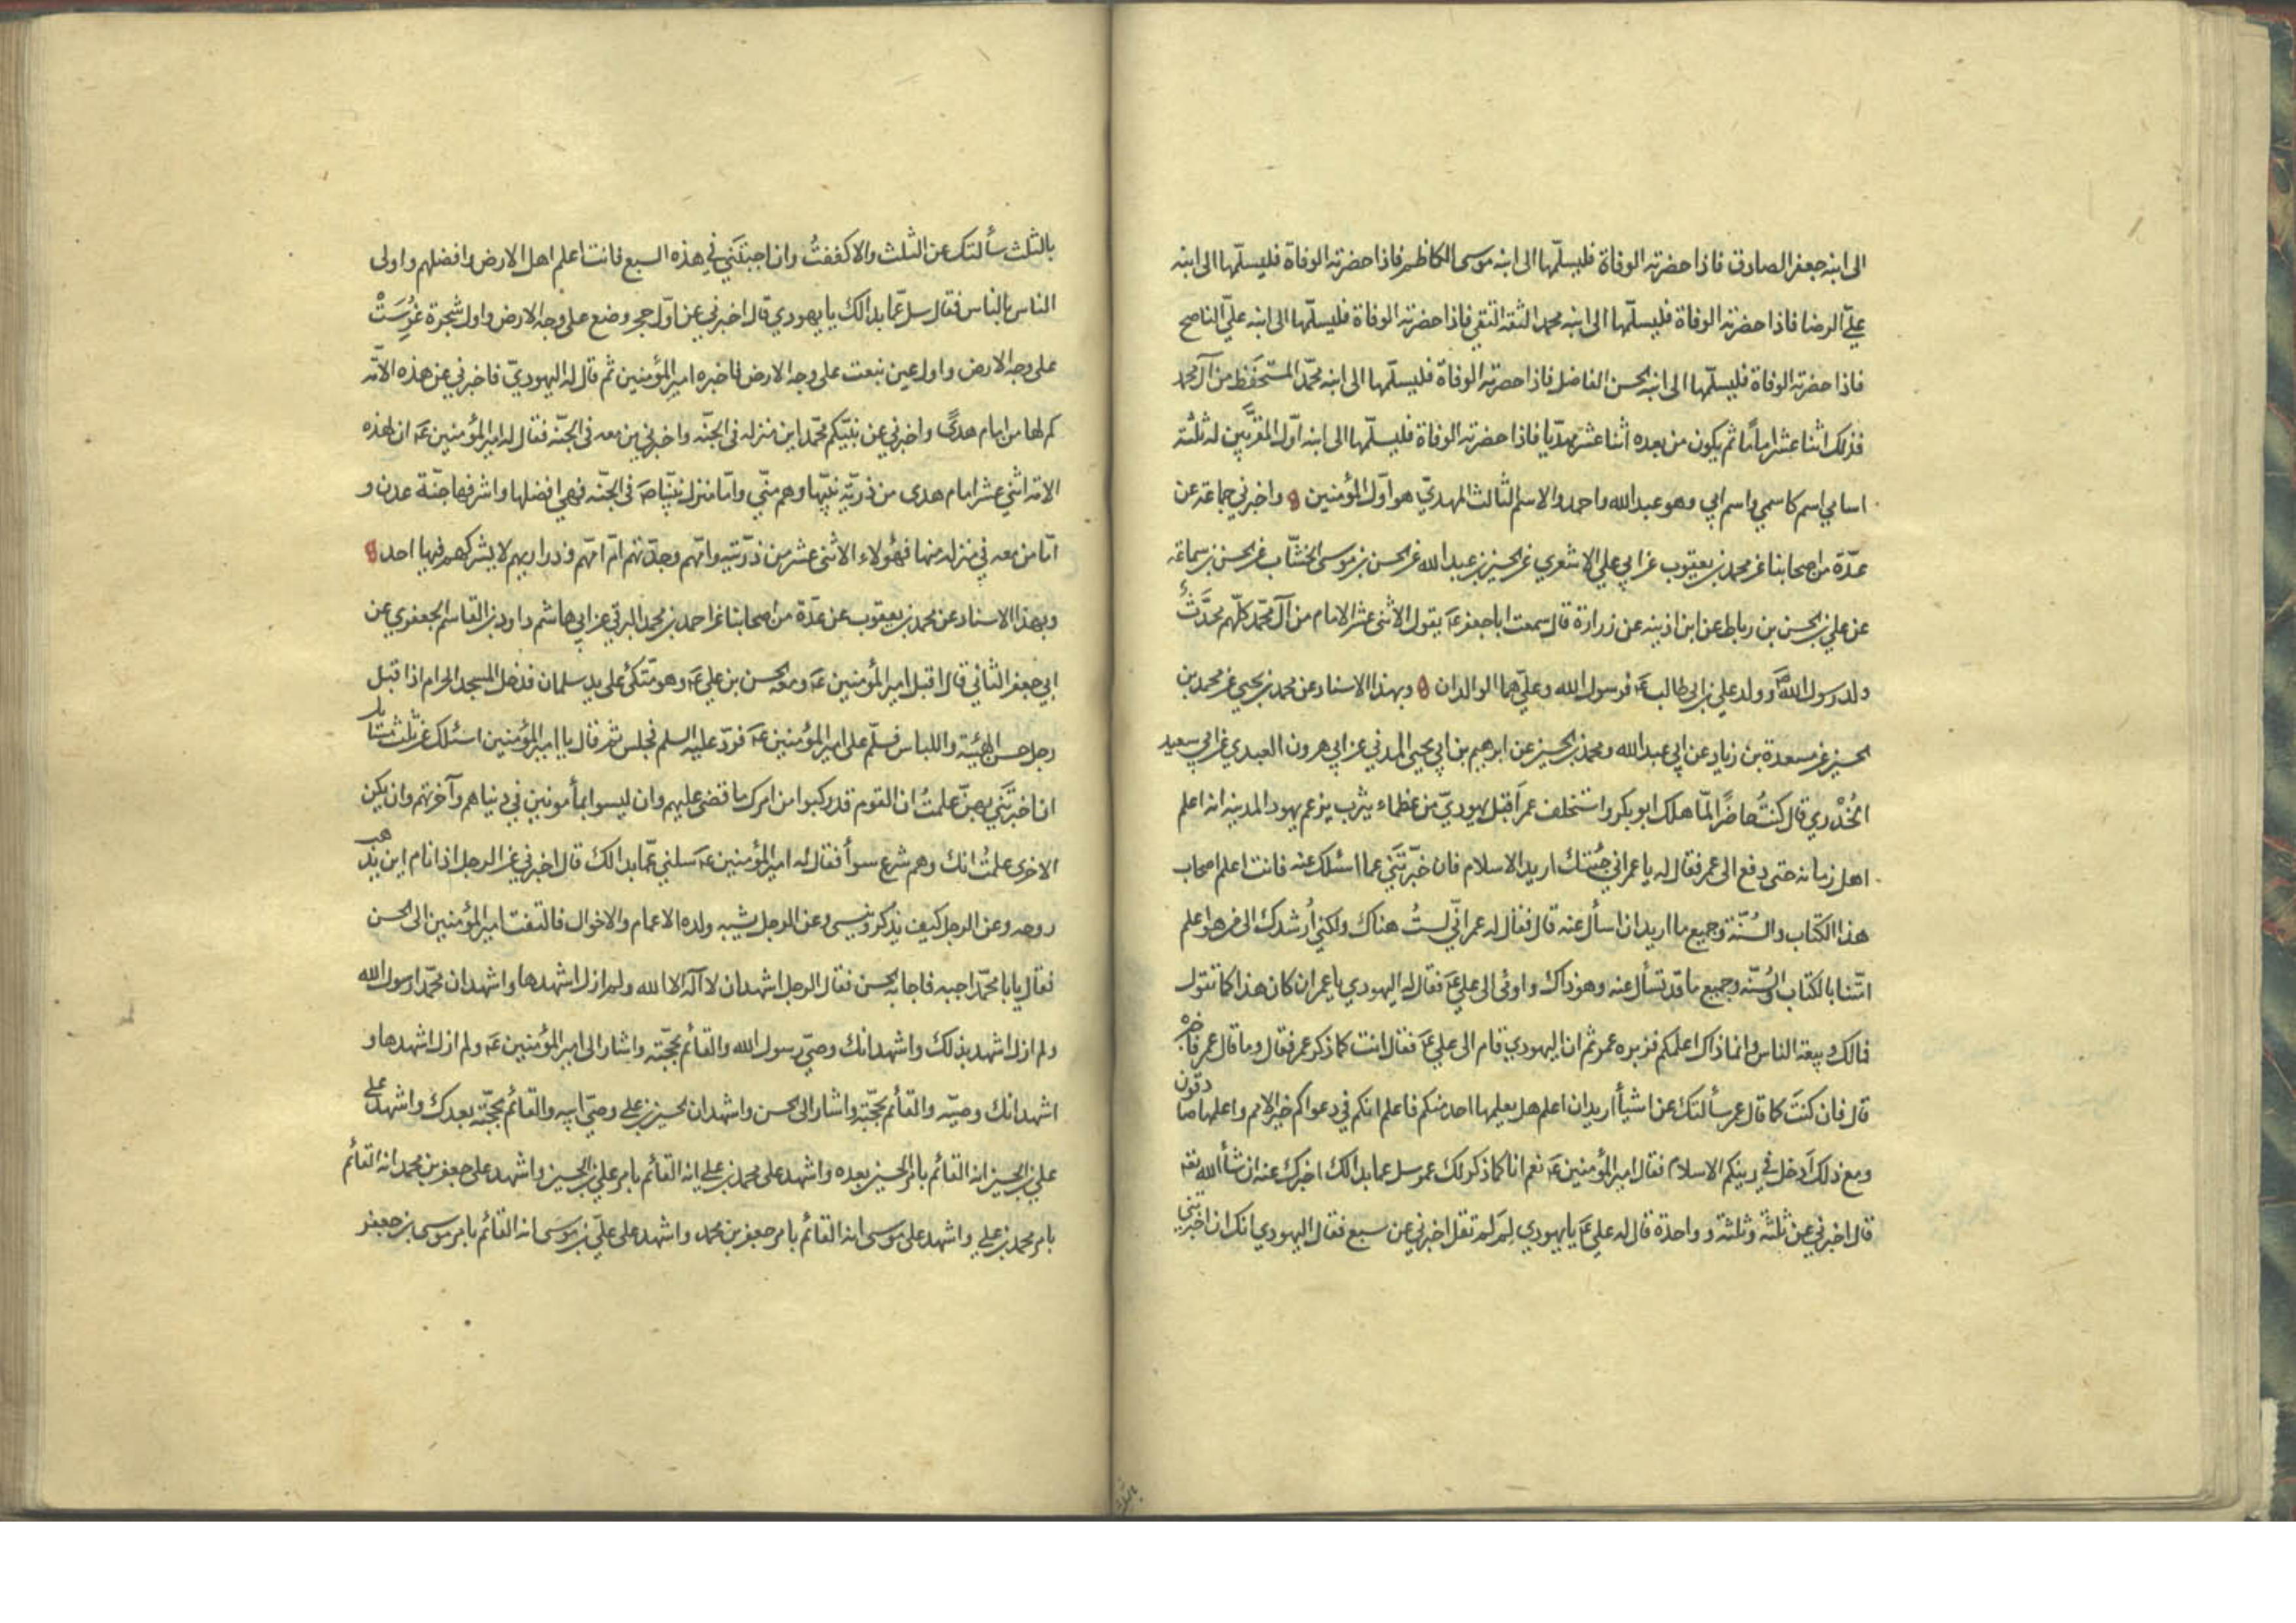 الى ابنه جعفر الصادق فاذا حضرته الوفاة فليسلّمها الى ابنه موسى الكاظم فاذا حضرته الوفاة فليسلّمها الى ابنه
عليّ الرضا فاذا حضرته الوفاة فليسلّمها الى ابنه محمد الثقة التقي فاذا حضرته الوفاة فليسلّمها الى ابنه عليّ الناصح
فاذا حضرته الوفاة فليسلّمها الى ابنه الحسن الفاضل فاذا حضرته الوفاة فليسلّمها الى ابنه محمّد المستحفَظ من آل محمد
فذلك اثنا عشر اماماً ثم يكون من بعده اثنا عشر مهديّا فاذا حضرته الوفاة فليسلّمها الى ابنه اوّل المقرّبين له ثلثة
اسامي اسم كاسمي واسم ابي وهو عبد الله واحمد والاسم الثالث المهديّ هو اوّل المؤمنين واخبرني جماعة عن
عدّة من اصحابنا عن محمد بن يعقوب عن ابي علي الاشعري عن الحسين بن عبد الله عن الحسن بن موسى الخشّاب عن الحسن بن سماعة
عن علي بن الحسن بن رباط عن ابن اذينه عن زرارة قال سمعت ابا جعفر عَ يقول الاثنى عشر الامام من آل محمّد كلّهم محدَّث
ولد رسول الله صَ وولد علي بن ابي طالب عَ فرسول الله وعليّ هما الوالدان وبهذا الاسناد عن محمد بن يحيي عن محمد بن
الحسين عن مسعدة بن زياد عن ابي عبد الله ومحمد بن الحسين عن ابرهيم بن ابي يحيي المدني عن ابي هرون العبدي عن ابي سعيد
الخُدْري قال كنتُ حاضرًا لمّا هلك ابو بكر واستخلف عمر اَقبل يهوديّ من عظماء يثرب يزعم يهود المدينه انه اعلم
اهل زمانه حتى دفع الى عمر فقال له يا عمر اني جئتك اريد الاسلام فان خبّرتَني عما اسئلك عنه فانت اعلم اصحاب
هذا الكتاب والسُنّة وجميع ما اريد ان اسأل عنه قال فقال له عمر انّي لستُ هناك ولكني اُرشدك الى من هو اعلم
امّتنا بالكتاب والسُنّه وجميع ما قد تسأل عنه وهو ذاك واومى الى علي عَ فقال له اليهودي يا عمر ان كان هذا كما تقول
فمالك وبيعة الناس وانما ذاك اعلمكم فزبره عمر ثم ان اليهودي قام الى علي عَ فقال انت كما ذكر عمر فقال وما قال عمر فاخبره
قال فان كنتَ كما قال عمر سألتك عن اشيأ اريد ان اعلم هل يعلمها احد منكم فاعلم انكم في دعواكم خير الامم واعلمها صادقون
ومع ذلك اَدخل في دينكم الاسلام فقال امير المؤمنين عَ نعم انا كما ذكر لك عمر سل عما بدا لك اخبرك عنه ان شأ الله تعَ
قال اخبرني عن ثلثة وثلثة وواحدة قال له علي عَ يا يهودي لِمَ لم تقل اخبرني عن سبع فقال اليهودي انك ان اخبرتني
بالثلث سألتك عن الثلث والا كففتُ وان اجبتَني في هذه السبع فانت اعلم اهل الارض وافضلهم واولى
الناس بالناس فقال سل عمّا بدا لك يا يهودي قال اخبرني عن اوّل حجر وضع على وجه الارض واول شجرة غُرِسَتْ
على وجه الارض واول عين نبعت على وجه الارض فاخبره امير المؤمنين ثم قال له اليهوديّ فاخبرني عن هذه الامّه
كم لها من امام هدىً واخبرني عن نبيّكم محمّد اين منزله في الجنّه واخبرني من معه في الجنّه فقال له امير المؤمنين عَ ان لهذه
الامّه اثني عشر امام هدى من ذريّة نبيّها وهم منّي وامّا منزل نبيّنا صَ في الجنّه فهي افضلها واشرفها جنّة عدن و
امّا من معه في منزله منها فهؤلاء الاثنى عشر من ذرّيته وامّهم وجدّتهم امّ امّهم وذراريهم لا يشركهم فيها احد
وبهذا الاسناد عن محمد بن يعقوب عن عدّة من اصحابنا عن احمد بن محمد البرقي عن ابي هاشم داود بن القاسم الجعفري عن
ابي جعفر الثاني قال اقبل امير المؤمنين عَ ومعه الحسن بن علي عَ وهو متّكئ على يد سلمان فدخل المسجد الحرام اذا قبل
رجل حسن الهيئة واللباس فسلّم على امير المؤمنين عَ فردّ عليه السلم فجلس ثم قال يا امير المؤمنين اسئلك عن ثلث مسائل
ان اخبرتَني بهنّ علمتُ ان القوم قد ركبوا من امرك ما قضى عليهم وان ليسوا بمأمونين في دنياهم وآخرتهم وان يكن
الاخرى علمتُ انك وهم شرع سوأ فقال له امير المؤمنين عَ سلني عمّا بدا لك قال اخبرني عن الرجل اذا نام اين يذهب
روحه وعن الرجل كيف يذكر وينسى وعن الرجل يشبه ولده الاعمام والاخوال فالتفت امير المؤمنين الى الحسن
فقال يابا محمّد اجبه فاجابه الحسن فقال الرجل اشهد ان لا آله الا الله ولم ازل اشهد ها واشهد ان محمّدا رسول الله
ولم ازل اشهد بذلك واشهد انك وصيّ رسول الله والقائم بحجّته واشار الى امير المؤمنين عَ ولم ازل اشهدها و
اشهد انك وصيّه والقائم بحجّته واشار الى الحسن واشهد ان الحسين بن علي وصيّ ابيه والقائم بحجّته بعدك واشهد على
علي بن الحسين انه القائم بامر الحسين بعده واشهد على محمد بن علي انه القائم بامر علي بن الحسين واشهد على جعفر بن محمد انه القائم
بامر محمد بن علي واشهد على موسى انه القائم بامر جعفر بن محمد واشهد على عليّ بن موسى انه القائم بامر موسى بن جعفر